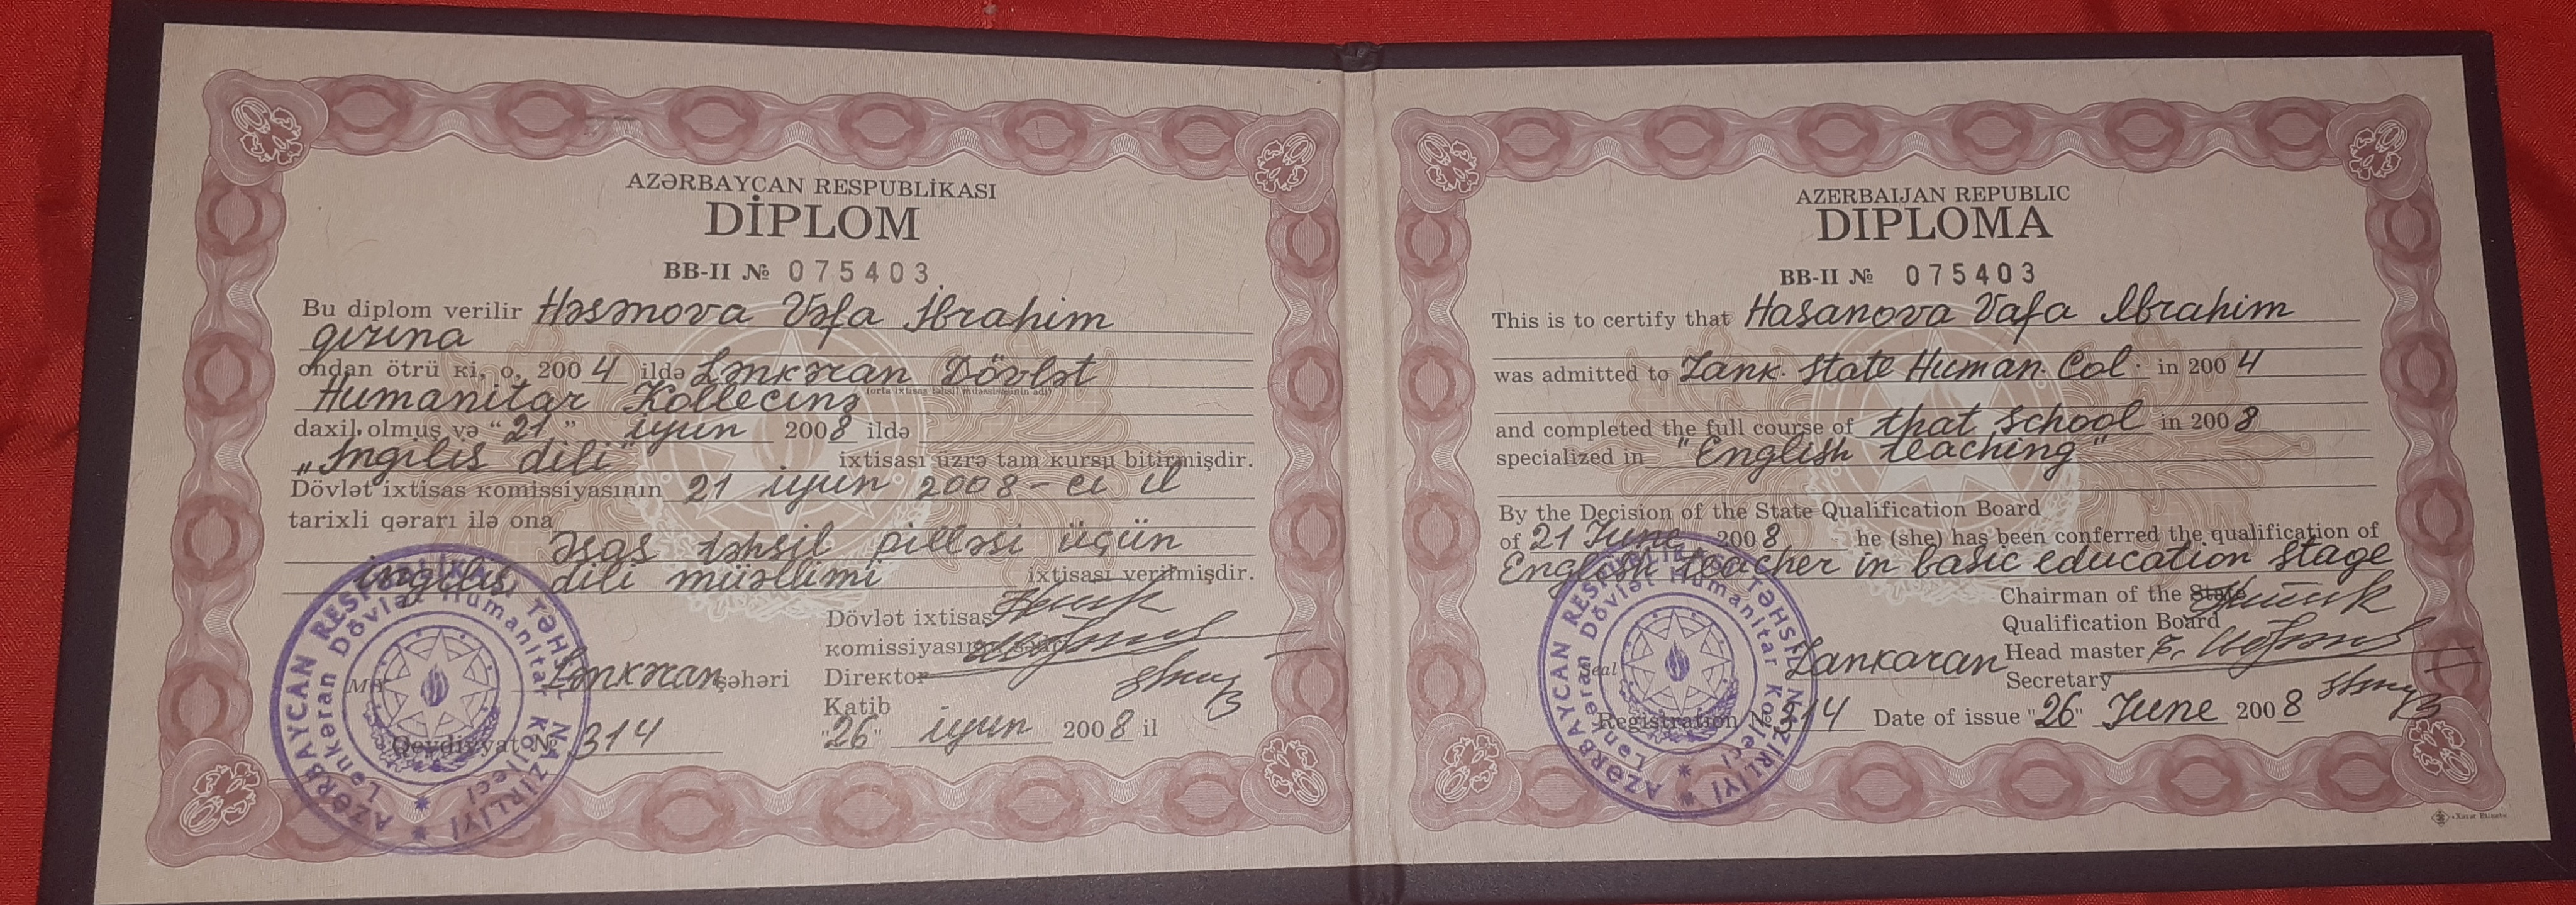 AZƏRBAYCAN RESPUBLİKASI
DİPLOM
BB-II № 075403
Bu diplom verilir Həsənova Vəfa İbrahim
qızına
ondan ötrü ki, o, 2004 ildə Lənkəran Dövlət
(orta ixtisas təhsil müəssisəsinin adı)
Humanitar Kollecinə
daxil olmuş və "21" iyun 2008 ildə
„İngilis dili"
ixtisası üzrə tam kursu bitirmişdir.
Dövlət ixtisas komissiyasının 21 iyun 2008-ci il
tarixli qərarı ilə ona
Əsas təhsil pilləsi üçün
ingilis dili müəllimi ixtisası verilmişdir.
Dövlət ixtisas
komissiyasının sədri
M.Y. Lənkəran şəhəri
Direktor
Katib
Qeydiyyat № 314
"26" iyun 2008 il
AZƏRBAYCAN RESPUBLİKASI TƏHSİL NAZİRLİYİ
Lənkəran Dövlət Humanitar Kolleci
AZERBAIJAN REPUBLIC
DIPLOMA
BB-II № 075403
This is to certify that Hasanova Vafa Ibrahim
was admitted to Lank. State Human. Col. in 2004
and completed the full course of that school in 2008
specialized in "English teaching"
By the Decision of the State Qualification Board
of 21 June 2008 he (she) has been conferred the qualification of
English teacher in basic education stage
Chairman of the State
Qualification Board
Seal Lankaran
Head master
Secretary
Registration № 314 Date of issue "26" June 2008
AZƏRBAYCAN RESPUBLİKASI TƏHSİL NAZİRLİYİ
Lənkəran Dövlət Humanitar Kolleci